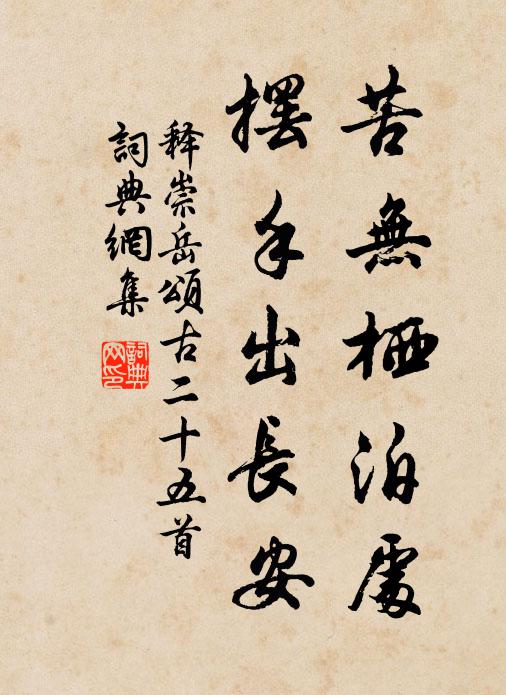 苦無栖泊處
擺手出長安
释崇岳頌古二十五首
詞典網集
詞典網印